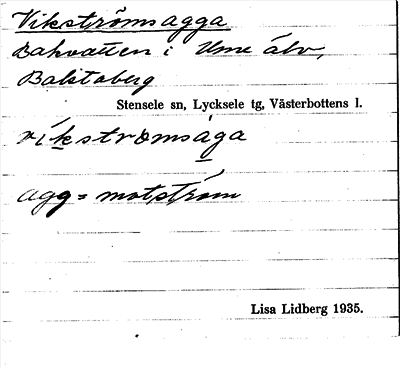 Vikströmsagga
Bakvatten i Ume älv,
Balstaberg
Stensele sn, Lycksele tg, Västerbottens l.
víkstromsága
agg = motström
Lisa Lidberg 1935.